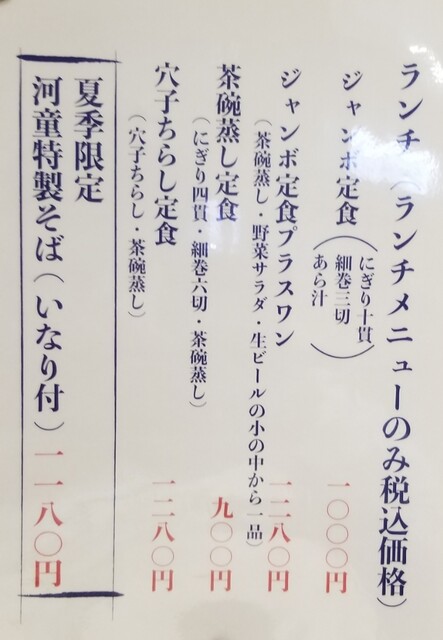 ランチ(ランチメニューのみ税込価格)
ジャンボ定食(にぎり十貫
細巻三切
あら汁) 一〇〇〇円
ジャンボ定食プラスワン 一二八〇円
(茶碗蒸し・野菜サラダ・生ビールの小の中から一品)
茶碗蒸し定食 九〇〇円
(にぎり四貫・細巻六切・茶碗蒸し)
穴子ちらし定食 一二八〇円
(穴子ちらし・茶碗蒸し)
夏季限定
河童特製そば(いなり付) 一一八〇円